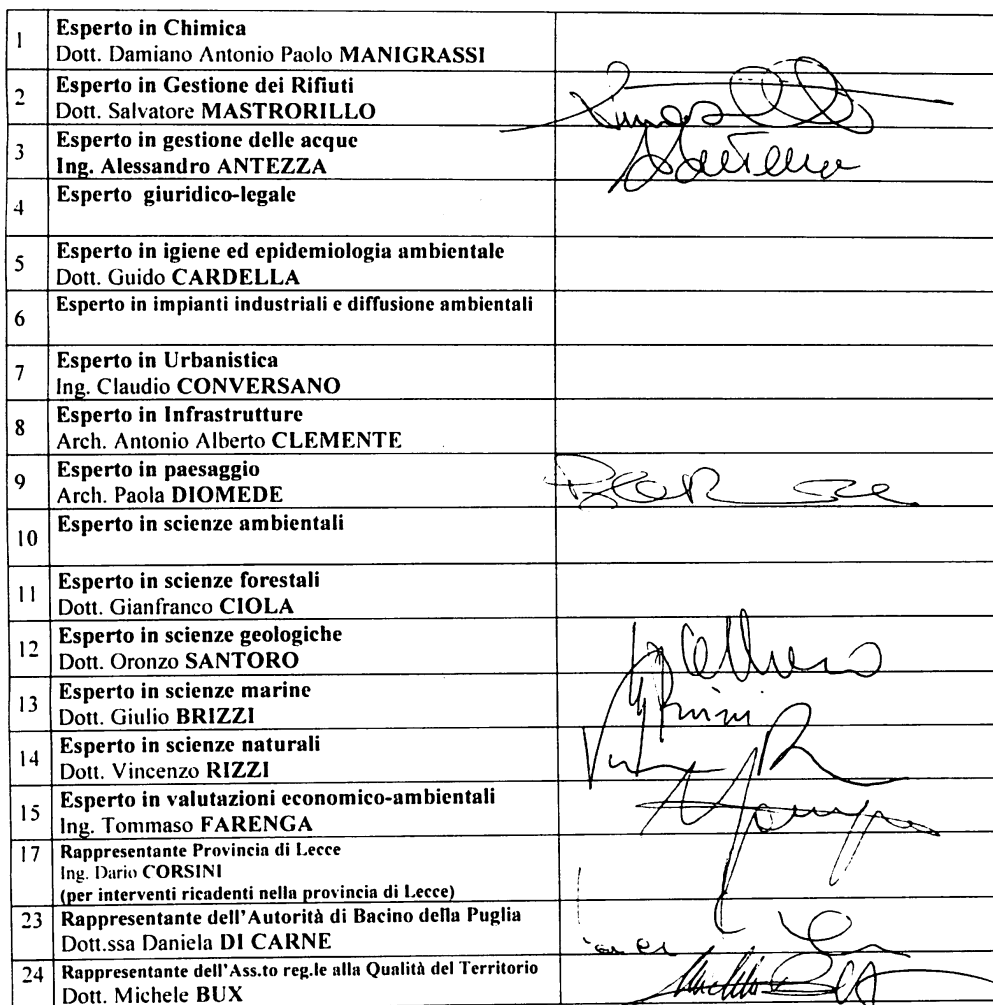 1 Esperto in Chimica
Dott. Damiano Antonio Paolo MANIGRASSI
2 Esperto in Gestione dei Rifiuti
Dott. Salvatore MASTRORILLO
3 Esperto in gestione delle acque
Ing. Alessandro ANTEZZA
4 Esperto giuridico-legale
5 Esperto in igiene ed epidemiologia ambientale
Dott. Guido CARDELLA
6 Esperto in impianti industriali e diffusione ambientali
7 Esperto in Urbanistica
Ing. Claudio CONVERSANO
8 Esperto in Infrastrutture
Arch. Antonio Alberto CLEMENTE
9 Esperto in paesaggio
Arch. Paola DIOMEDE
10 Esperto in scienze ambientali
11 Esperto in scienze forestali
Dott. Gianfranco CIOLA
12 Esperto in scienze geologiche
Dott. Oronzo SANTORO
13 Esperto in scienze marine
Dott. Giulio BRIZZI
14 Esperto in scienze naturali
Dott. Vincenzo RIZZI
15 Esperto in valutazioni economico-ambientali
Ing. Tommaso FARENGA
17 Rappresentante Provincia di Lecce
Ing. Dario CORSINI
(per interventi ricadenti nella provincia di Lecce)
23 Rappresentante dell'Autorità di Bacino della Puglia
Dott.ssa Daniela DI CARNE
24 Rappresentante dell'Ass.to reg.le alla Qualità del Territorio
Dott. Michele BUX